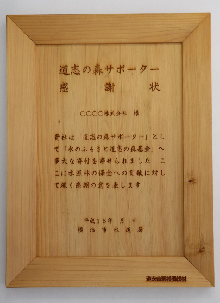 道志の森サポーター
感謝状
CCCC株式会社 様
貴社は「道志の森サポーター」とし
て「水のふるさと道志の森基金」へ
多大な寄付を寄せられました こ
こに水源林の保全への貢献に対し
て深く感謝の意を表します
平成18年 月
横浜市水道局